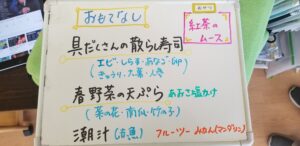 おもてなし
おやつ
紅茶の
ムース
具だくさんの散らし寿司
(エビ・しらす・あなご・卵
きゅうり・大葉・人参)
春野菜の天ぷら あおさ塩かけ
(菜の花・南瓜・竹の子)
潮汁
フルーツ→みかん(マンダリン)